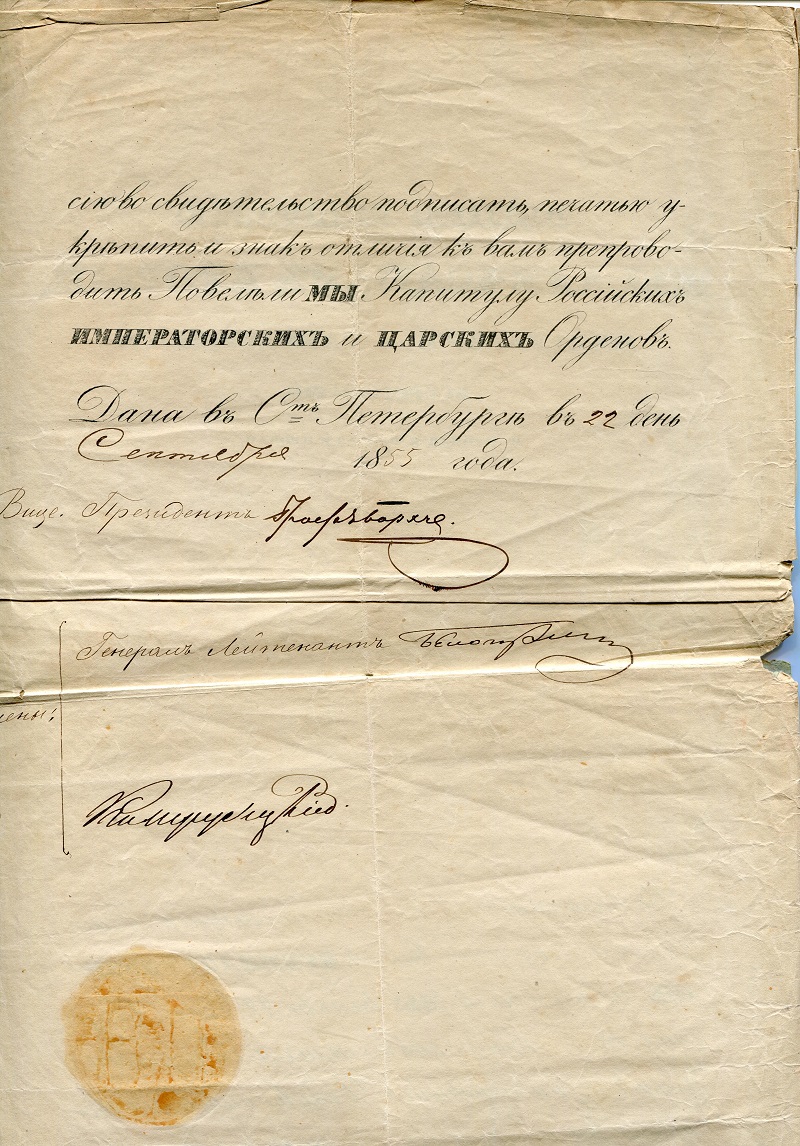 сію во свидѣтельство подписать, печатью у-
крѣпить и знакъ отличія къ вамъ препрово-
дить Повелѣли МЫ Капитулу Россійскихъ
ИМПЕРАТОРСКИХЪ и ЦАРСКИХЪ Орденовъ.
Дана въ Стъ Петербургѣ въ 22 день
Сентября 1855 года.
Вице. Президентъ Графъ Борхъ.
Генералъ Лейтенантъ